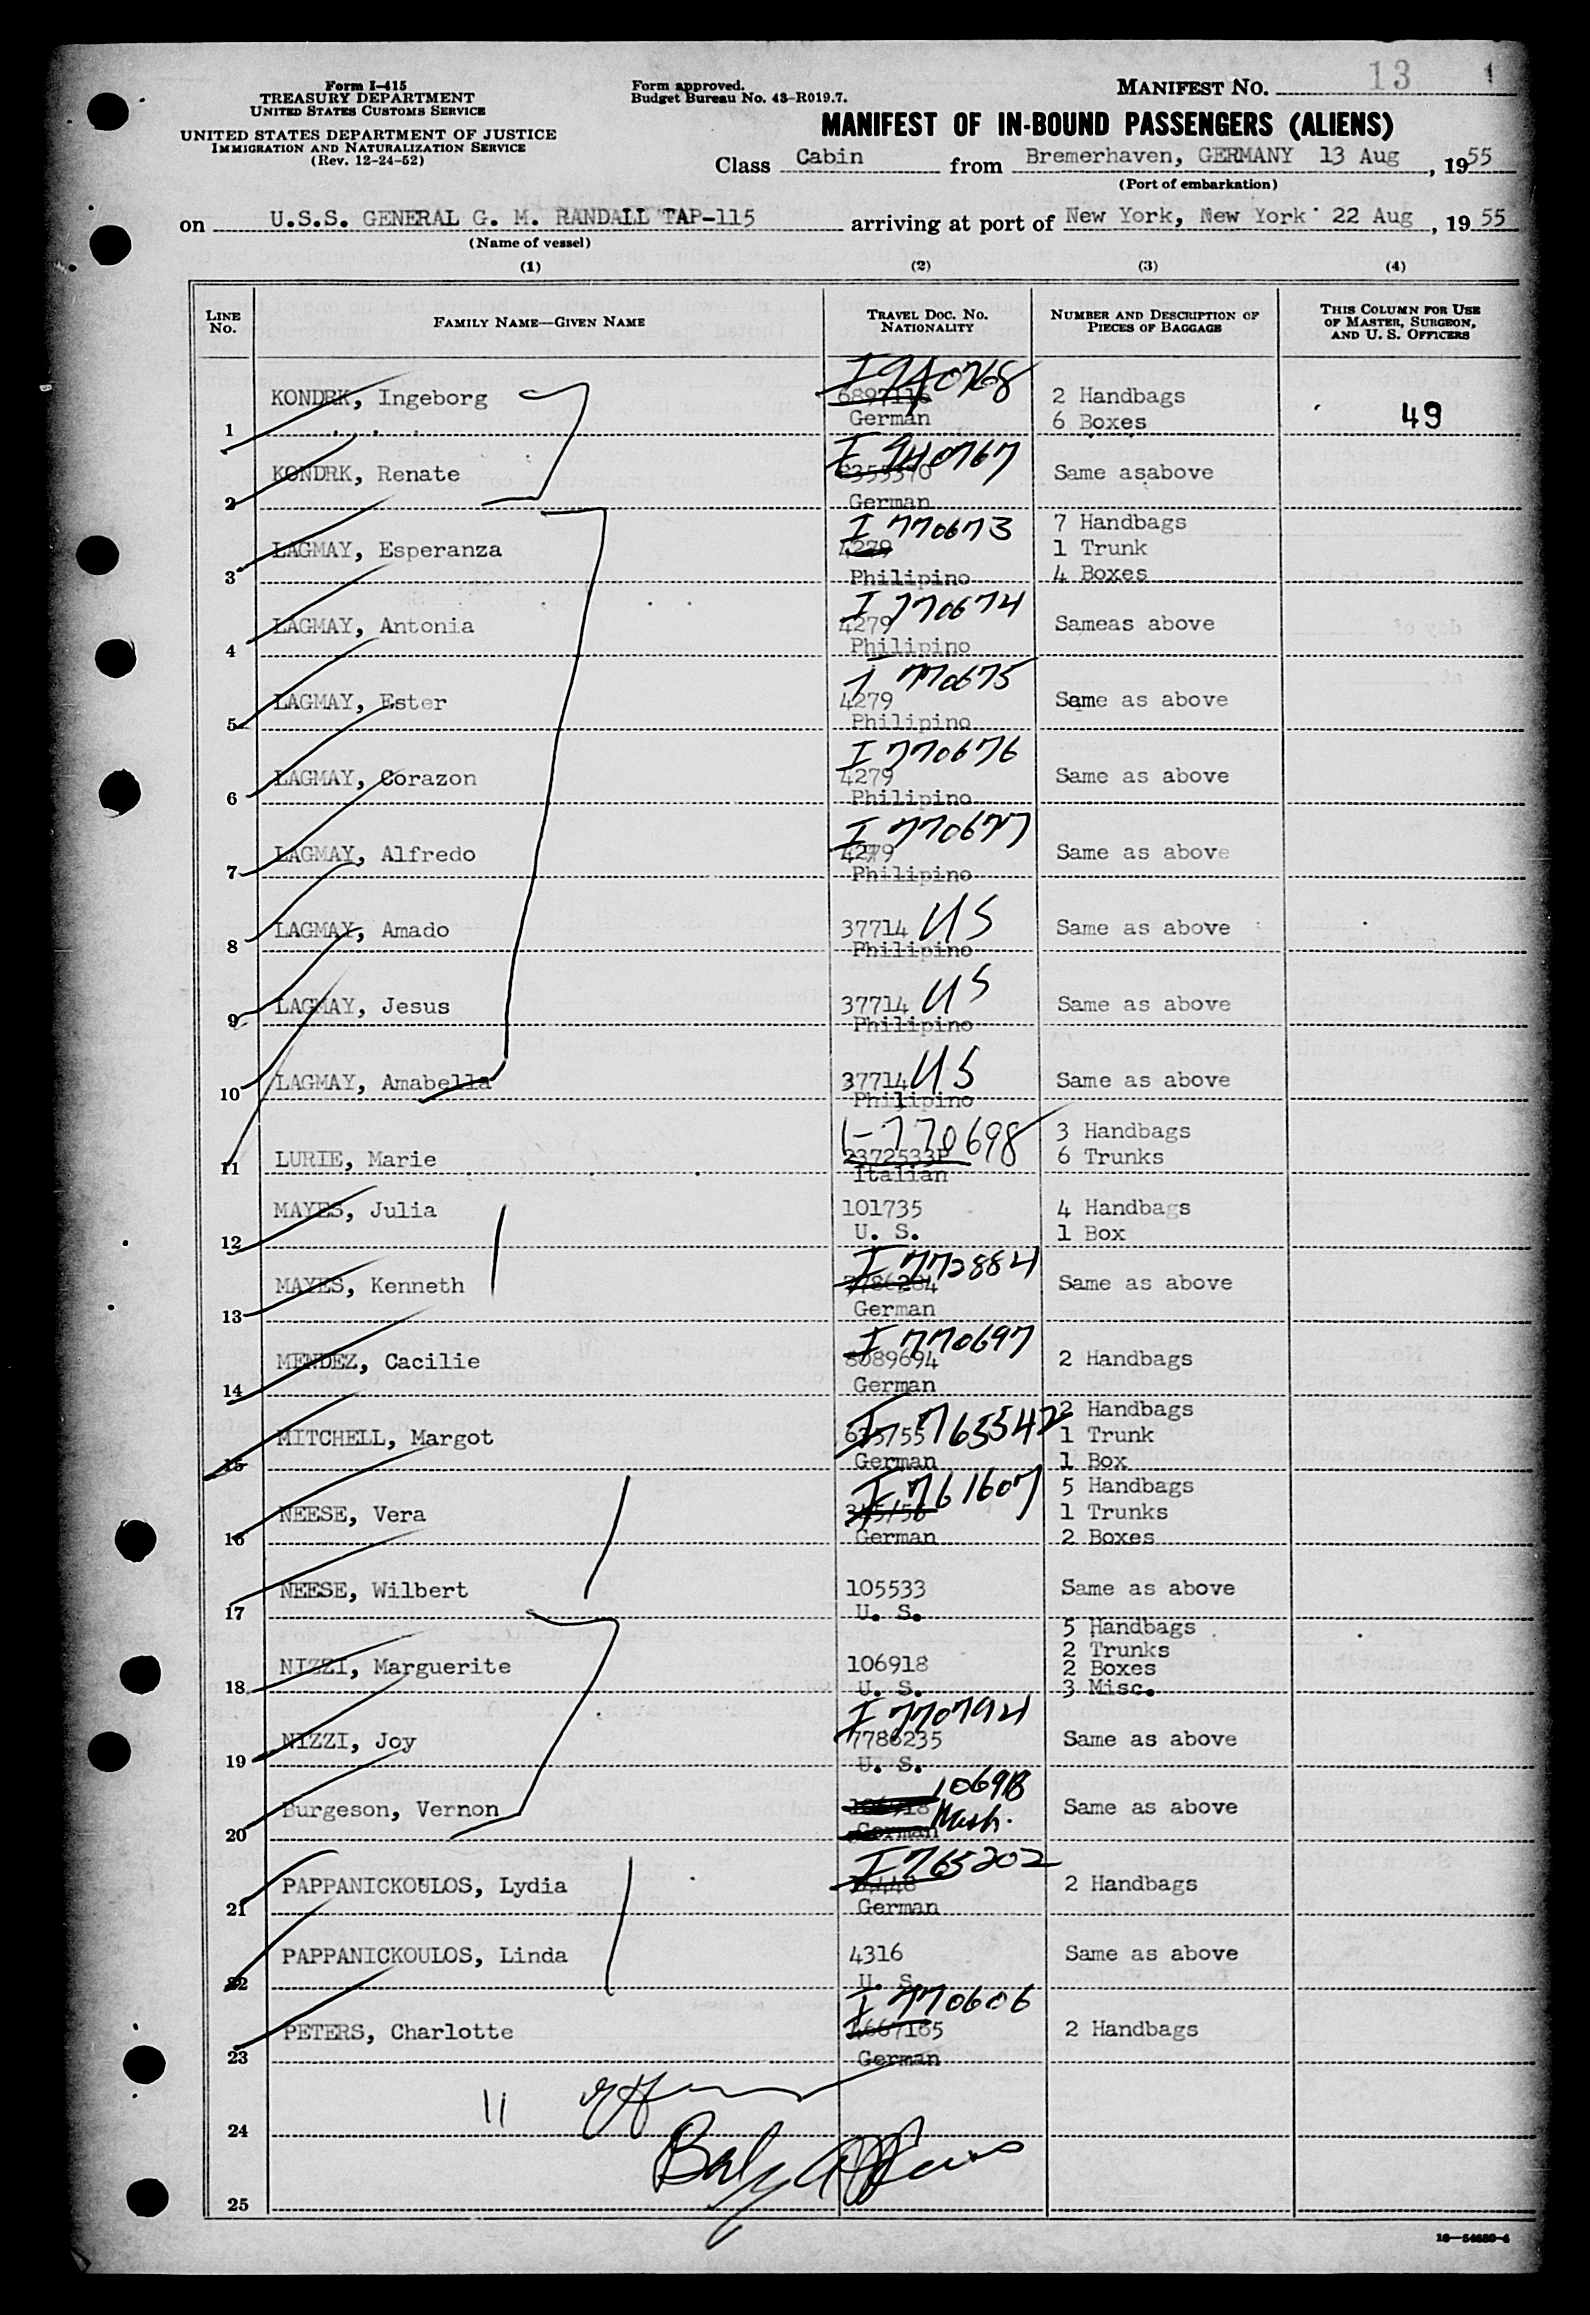 Form I-415
TREASURY DEPARTMENT
UNITED STATES CUSTOMS SERVICE
UNITED STATES DEPARTMENT OF JUSTICE
IMMIGRATION AND NATURALIZATION SERVICE
(Rev. 12-24-52)
Form approved.
Budget Bureau No. 43-R019.7.
MANIFEST NO. 13 1
MANIFEST OF IN-BOUND PASSENGERS (ALIENS)
Class Cabin from Bremerhaven, GERMANY 13 Aug, 1955
(Port of embarkation)
on U.S.S. GENERAL G. M. RANDALL TAP-115 arriving at port of New York, New York 22 Aug, 1955
(Name of vessel)
(1) (2) (3) (4)
LINE NO. FAMILY NAME—GIVEN NAME TRAVEL DOC. NO. NATIONALITY NUMBER AND DESCRIPTION OF PIECES OF BAGGAGE THIS COLUMN FOR USE OF MASTER, SURGEON, AND U. S. OFFICERS
I 940768
KONDRK, Ingeborg 6897116 2 Handbags
1 German 6 Boxes 49
I 940767
KONDRK, Renate 8355370 Same asabove
2 German
I 770673 7 Handbags
LAGMAY, Esperanza 4279 1 Trunk
3 Philipino 4 Boxes
I 770674
LAGMAY, Antonia 4279 Sameas above
4 Philipino
I 770675
LAGMAY, Ester 4279 Same as above
5 Philipino
I 770676
LAGMAY, Corazon 4279 Same as above
6 Philipino
I 770677
LAGMAY, Alfredo 4279 Same as above
7 Philipino
LAGMAY, Amado 37714 US Same as above
8 Philipino
LAGMAY, Jesus 37714 US Same as above
9 Philipino
LAGMAY, Amabella 37714 US Same as above
10 Philipino
I-770698 3 Handbags
11 LURIE, Marie 2372533P 6 Trunks
Italian
MAYES, Julia 101735 4 Handbags
12 U. S. 1 Box
I 7728841
MAYES, Kenneth 7786284 Same as above
13 German
I 770697
MENDEZ, Cacilie 8089694 2 Handbags
14 German
I 765542 2 Handbags
MITCHELL, Margot 635755 1 Trunk
15 German 1 Box
I 761607 5 Handbags
NEESE, Vera 1 Trunks
16 German 2 Boxes
NEESE, Wilbert 105533 Same as above
17 U. S.
5 Handbags
2 Trunks
NIZZI, Marguerite 106918 2 Boxes
18 U. S. 3 Misc.
I 770794
NIZZI, Joy 7786235 Same as above
19 U. S.
106918
Burgeson, Vernon 106918 Same as above
20 German
I 765202
PAPPANICKOULOS, Lydia 2 Handbags
21 German
PAPPANICKOULOS, Linda 4316 Same as above
22 U. S.
I 770606
PETERS, Charlotte 4667185 2 Handbags
23 German
11
24
25
16—54630-4